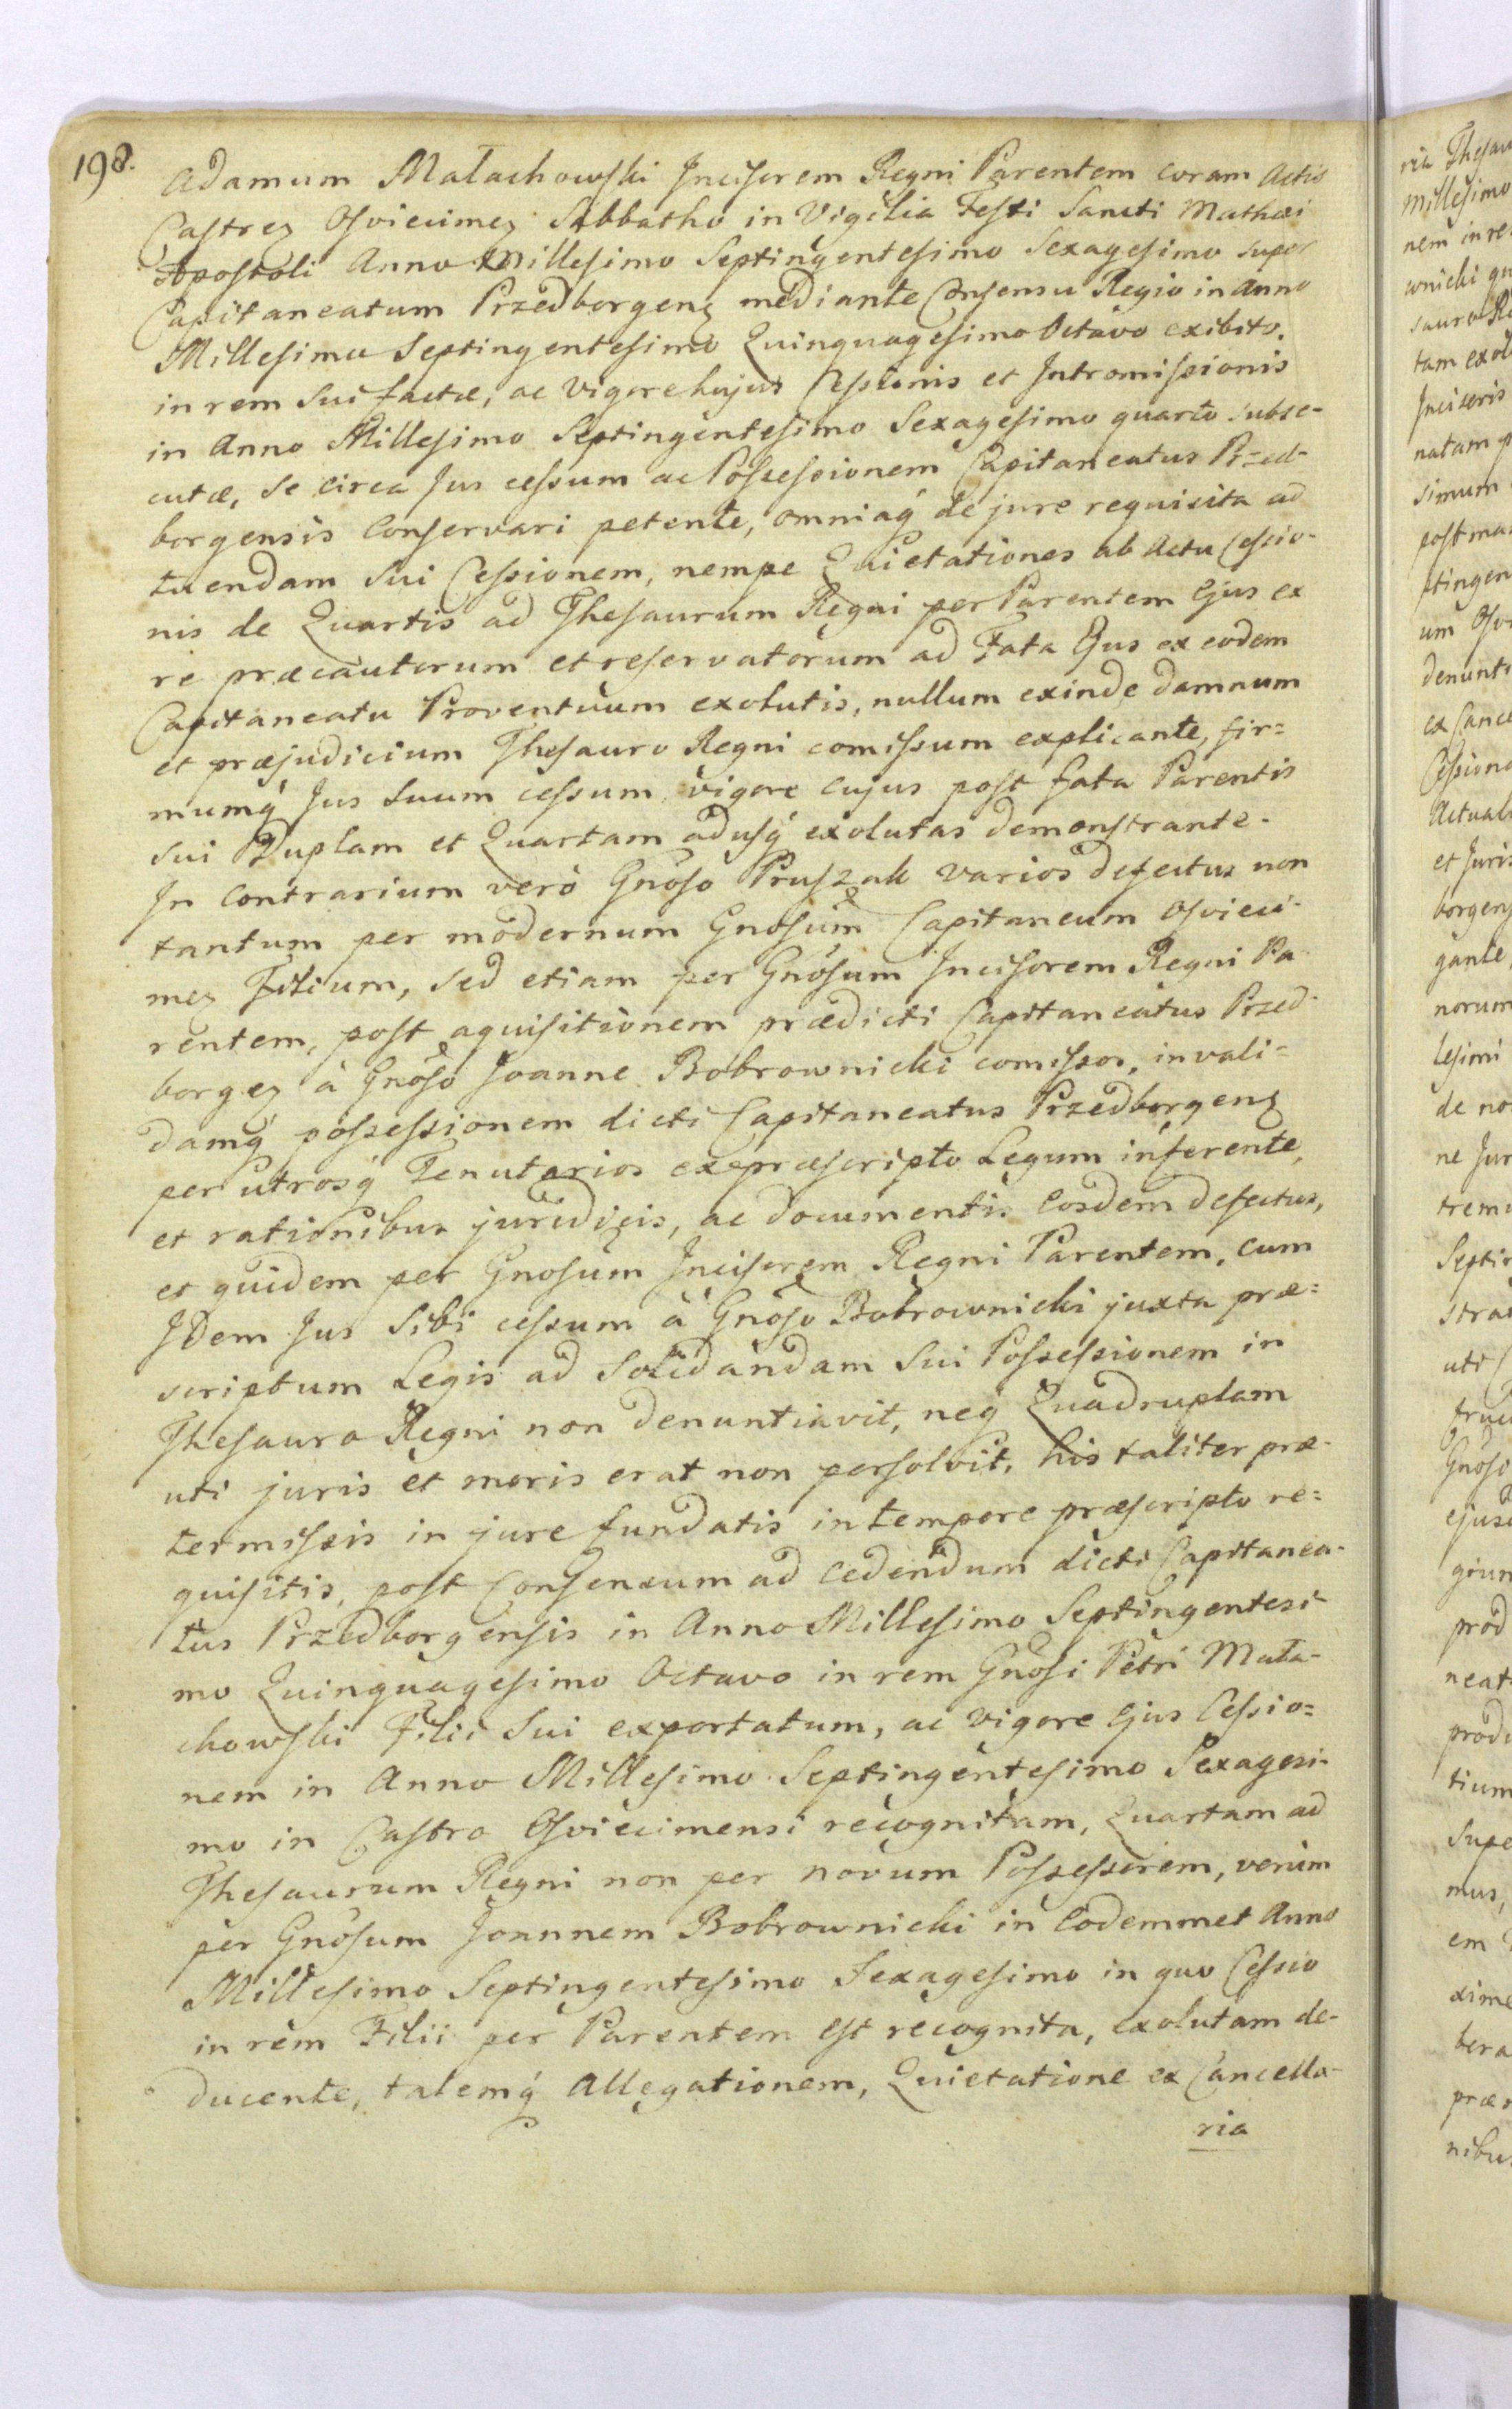 198.
Adamum Małachowski Inciſorem Regni Parentem coram Actis
Caſtreꝫ Oſviecimeꝫ Sabbatho in Vigilia Feſti Sancti Mathæi
Apoſtoli Anno Milleſimo Septingenteſimo Sexageſimo super
Capitaneatum Przedborgenꝫ mediante Conſenſu Regio in Anno
Milleſimo Septingenteſimo Quinquageſimo Octavo exibito.
in rem Sui factæ, ac vigore hujus Ceſsionis et Intromiſsionis
in Anno Milleſimo Septingenteſimo Sexageſimo quarto subse-
cutæ, Se circa Jus ceſsum ac Poſseſsionem Capitaneatus Przed-
borgensis Conſervari petente, omniaq́ de jure requisita ad
tuendam Sui Ceſsionem, nempe Quietationes ab Actu Ceſsio-
nis de Quartis ad Theſaurum Regni per Parentem Ejus ex
re præcautorum et reſervatorum ad Fata Ejus ex eodem
Capitaneatu Proventuum exolutis, nullum exinde damnum
et præjudicium Theſauro Regni comiſsum explicante, fir=
mumq́ Jus Suum ceſsum vigore cujus poſt fata Parentis
Sui Duplam et Quartam aduſq́ exolutas demonſtrante.
In Contrarium verò Gnoſo Pruſzak varios defectus non
tantum per modernum Gnoſum Capitaneum Oſvieci-
meꝫ Filium, Sed etiam per Gnoſum Inciſorem Regni Pa
rentem, poſt aquiſitionem prædicti Capitaneatus Przed-
borgeꝫ à Gnoſo Joanne Bobrownicki comiſsos, invali=
damq́ poſseſsionem dicti Capitaneatus Przedborgenꝫ
per utrosq́ Tenutarios ex præſcripto Legum inferente,
et rationibus juridicis, ac documentis Eosdem defectus,
et quidem per Gnoſum Inciſorem Regni Parentem, cum
Idem Jus Sibi ceſsum à Gnoſo Bobrownicki juxta præ=
scriptum Legis ad Solidandam Sui Poſseſsionem in
Theſauro Regni non denuntiavit, neq́ Quadruplam
uti juris et moris erat non perſolvit, his taliter præ-
termiſsis in jure fundatis in tempore præſcripto re=
quiſitis, poſt Conſensum ad cedendum dicti Capitanea-
tus Przedborgenſis in Anno Milleſimo Septingentesi-
mo Quinquageſimo Octavo in rem Gnoſi Petri Mała-
chowſki Filii Sui exportatum, ac vigore Ejus Ceſsio=
nem in Anno Milleſimo Septingenteſimo Sexagesi-
mo in Caſtro Oſviecimensi recognitam, Quartam ad
Theſaurum Regni non per novum Poſseſsorem, verùm
per Gnoſum Joannem Bobrownicki in Eodemmet Anno
Milleſimo Septingenteſimo Sexageſimo in quo Ceſsio
in rem Filii per Parentem eſt recognita, exolutam de-
ducente, talemq́ Allegationem, Quietatione ex Cancella-
ria